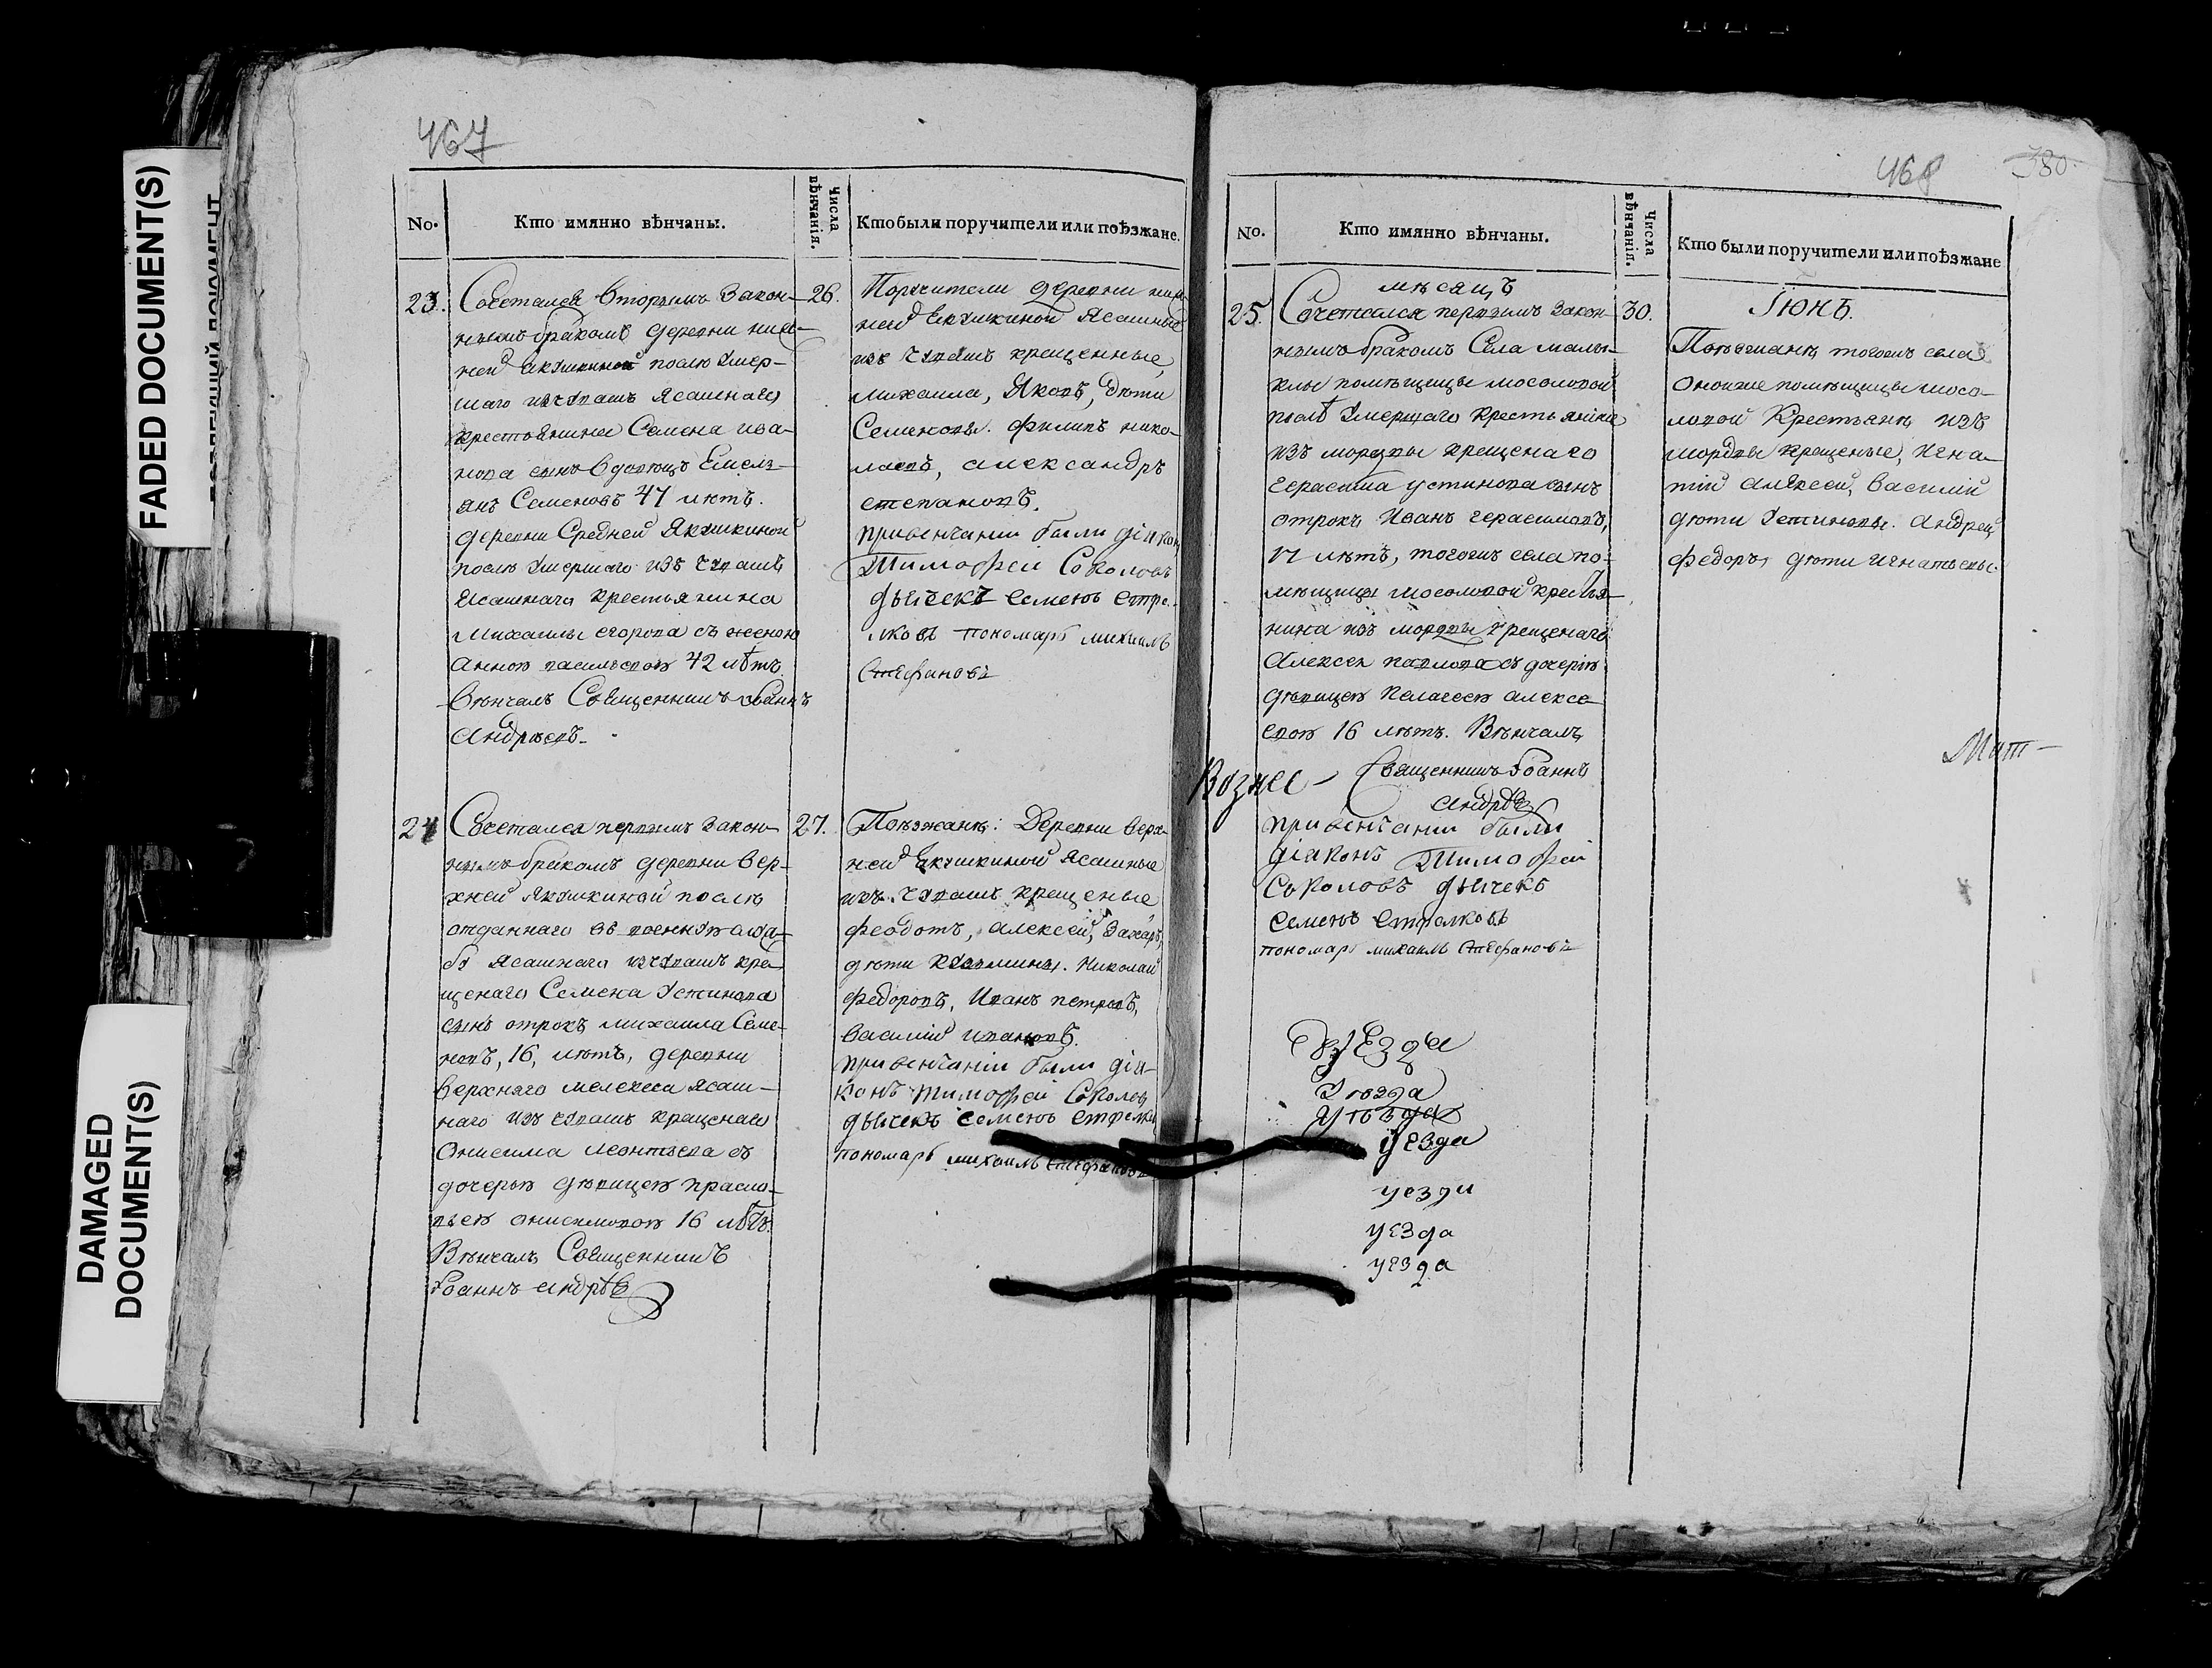 FADED DOCUMENT(S)
DAMAGED
DOCUMENT(S)
467
No.
Кто имянно вѣнчаны.
Числа
вѣнчанія.
Кто были поручители или поѣзжане.
23.
Сочетался вторымъ закон-
нымъ бракомъ деревни ниж-
ней Якушкиной послѣ умер-
шаго изъ чувашъ ясашнаго
крестьянина Семена ива-
нова сынъ вдовецъ Емель-
янъ Семеновъ 47 лѣтъ.
деревни Средней Якушкиной
послѣ умершаго изъ чувашъ
Ясашнаго крестьянина
Михаилы егорова съ женою
Анною васильевою 42 лѣтъ.
вѣнчалъ Священникъ Иоаннъ
Андрѣевъ.
26.
Поручители деревни ниж-
ней Якушкиной Ясашные
изъ чувашъ крещенные
михаила, Яковъ, дѣти
Семеновы. филипъ нико-
лаевъ, александръ
степановъ.
привенчании были діякон
Тимофей Соколовъ
дьячекъ Семенъ Стре-
лковъ пономарь михаилъ
Стефановъ
24
Сочетался первымъ закон-
нымъ бракомъ деревни вер-
хней Якушкиной послѣ
отданнаго въ военную служ-
бу Ясашнаго изъ чувашъ кре-
щенаго Семена Устинова
сынъ отрокъ михаила Семе-
новъ, 16, лѣтъ, деревни
верхняго мелекеса ясаш-
наго изъ чувашъ крещенаго
Онисима леонтьева съ
дочерью дѣвицею праско-
вьею онисимовою 16 лѣтъ.
Вѣнчалъ Священникъ
Іоаннъ андрѣевъ
27.
Поѣзжанѣ: Деревни верх-
ней Якушкиной Ясашные
изъ чувашъ крещеные
феодотъ, алексей, Захаръ,
дѣти кузмины. Николай
федоровъ, Иванъ петровъ,
василий ивановъ.
привенчаніи были діа-
конъ тимофей Соколов
дьячекъ Семенъ Стрелков
пономарь михаилъ Стефановъ
468
380
No.
Кто имянно вѣнчаны.
Числа
вѣнчанія.
Кто были поручители или поѣзжане
мѣсяцъ
Іюнь.
25.
Сочетался первымъ закон-
нымъ бракомъ Села малы-
клы помѣщицы мосоловой
послѣ умершаго крестьянина
изъ мордвы крещенаго
герасима устинова сынъ
отрокъ Иванъ герасимовъ,
17 лѣтъ, тогожъ села по-
мѣщицы мосоловой крестья-
нина изъ мордвы крещенаго
Алексея павлова съ дочерію
дѣвицею пелагеею алексе-
евою 16 лѣтъ. Вѣнчалъ
Священникъ Іоаннъ
андрѣевъ
привенчании были
діаконъ Тимофей
Соколовъ дьячекъ
Семенъ Стрелковъ
пономарь михаилъ Стефановъ
30.
Поѣзжанѣ тогожъ села
оной же помѣщицы мосо-
ловой Крестьянѣ изъ
мордвы крещеные, Игна-
тій алексей, василій
дѣти Устиновы. андрей
федоръ, дѣти игнатьевы.
Вознес-
Мит-
уезда
уезда
уезда